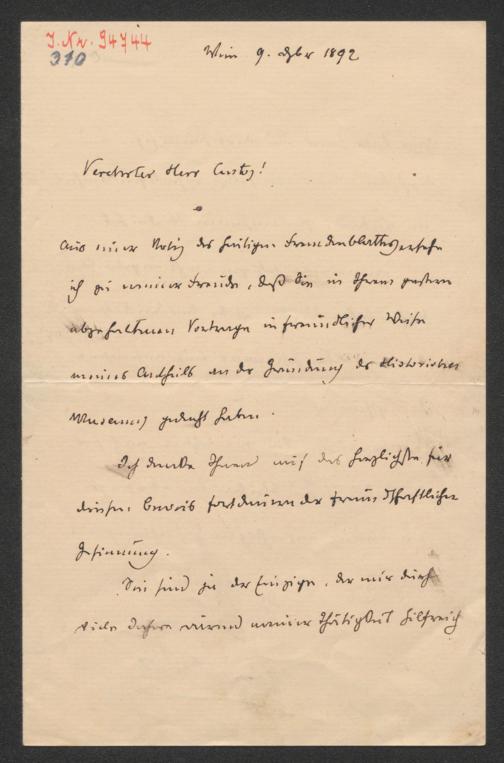 J. Nr. 94744
370
Wien 9. Dzbr 1892
Verehrter Herr Custos!
Aus einer Notiz des heutigen Fremdenblattes ersehe
ich zu meiner Freude, daß Sie in Ihrem gestern
abgehaltenen Vortrage in freundlicher Weise
meines Antheils an der Gründung des Historischen
Museums gedacht haben.
Ich danke Ihnen auf das herzlichste für
diesen Beweis fortdauernder freundschaftlicher
Gesinnung.
Sie sind ja der Einzige, der mir durch
viele Jahre meiner Thätigkeit hilfreich